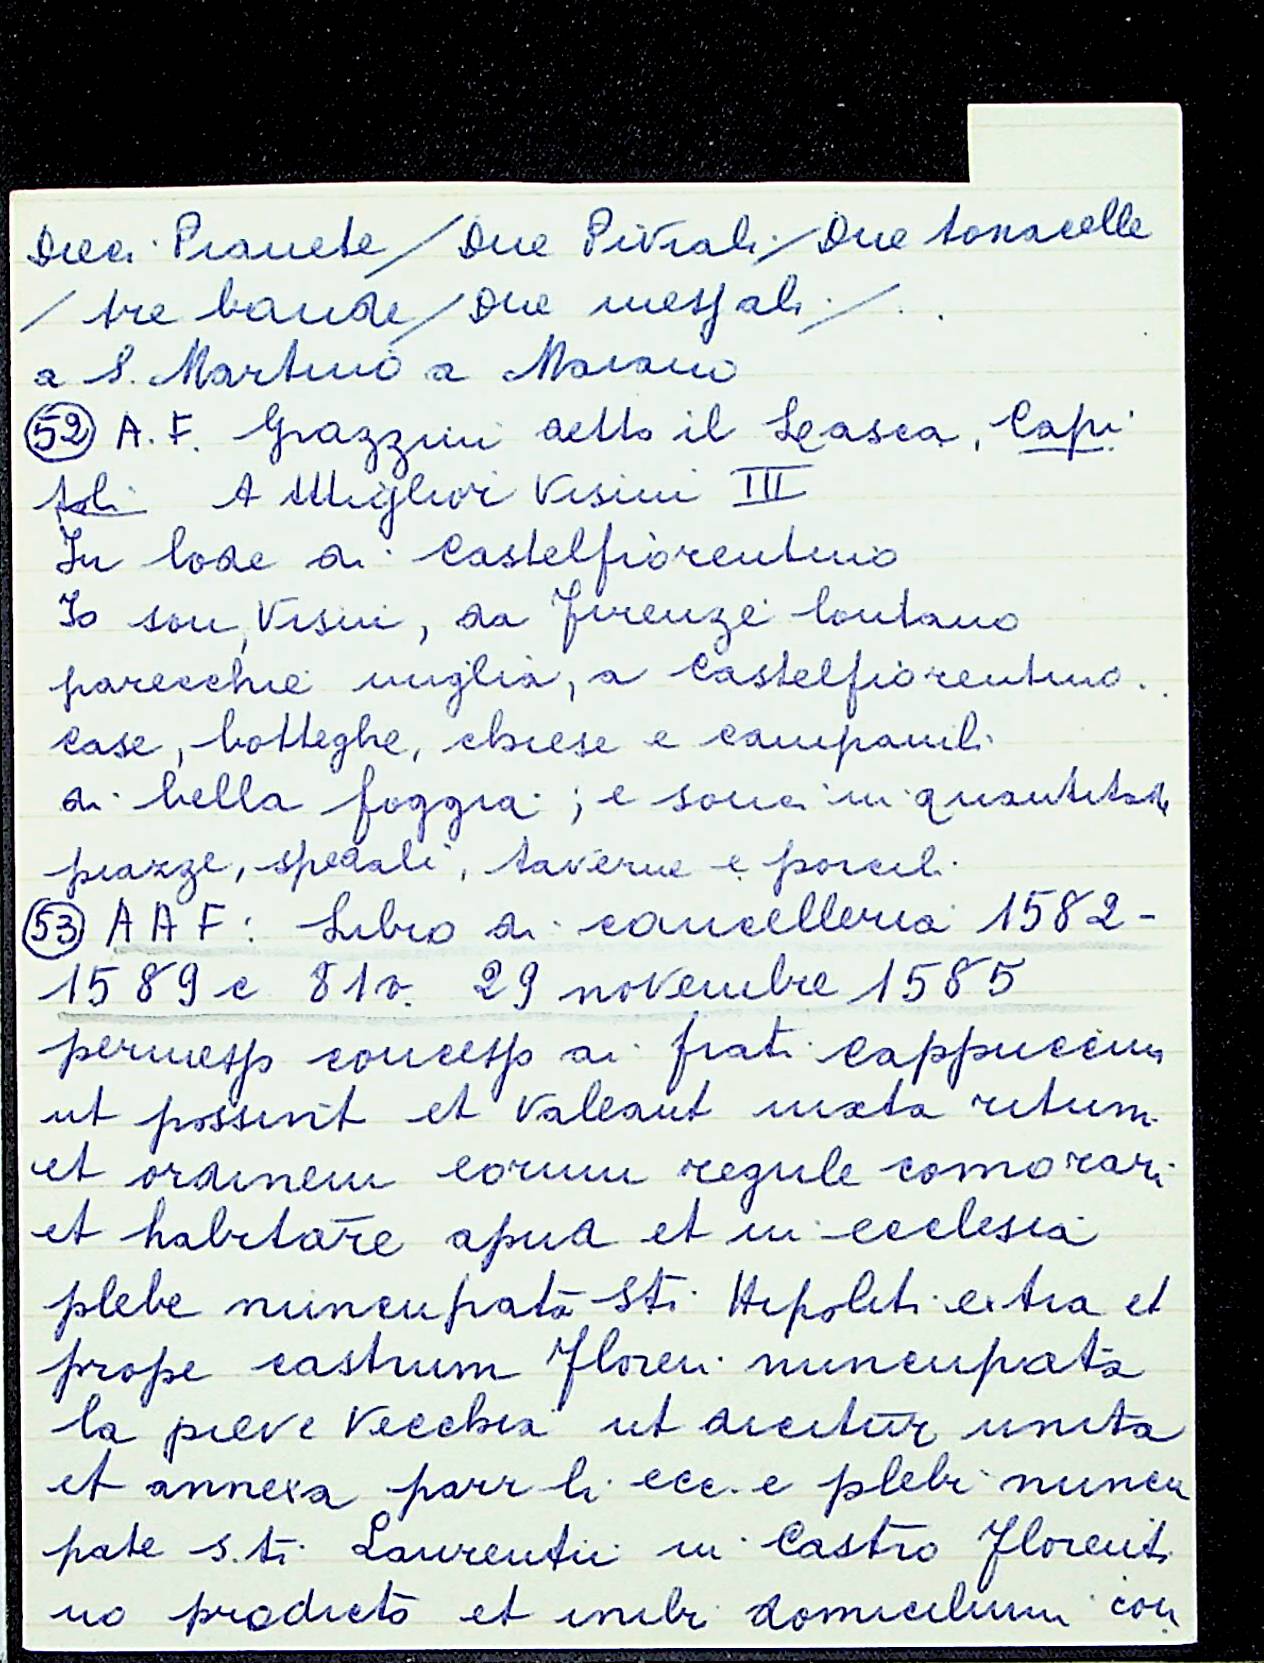 Dieci Pianete / Due Piviali / Due tonacelle
/ tre bande / Due messali / . .
a S. Martino a Maiano
52 A. F. Grazzini detto il Lasca, Capi
toli A Miglior Visini III
In lode di Castelfiorentino
Io son, Visini, da Firenze lontano
parecchie miglia, a Castelfiorentino..
case, botteghe, chiese e campanili
di bella foggia; e sonci in quantitate
piazze, spedali, taverne e porcili
53 AAF: Libro di cancelleria 1582-
1589 c 81v. 29 novembre 1585
permesso concesso ai frati cappuccini
ut possint et valeant iuxta ritum
et ordinem eorum regule comorari
et habitare apud et in ecclesia
plebe nuncupata Sti Hipoliti extra et
prope castrum Floren. nuncupata
la pieve vecchia ut dicitur unita
et annexa parr li ecc. e plebi nuncu
pate s.ti Laurentii in Castro Florenti
no predicto et inibi domicilium con